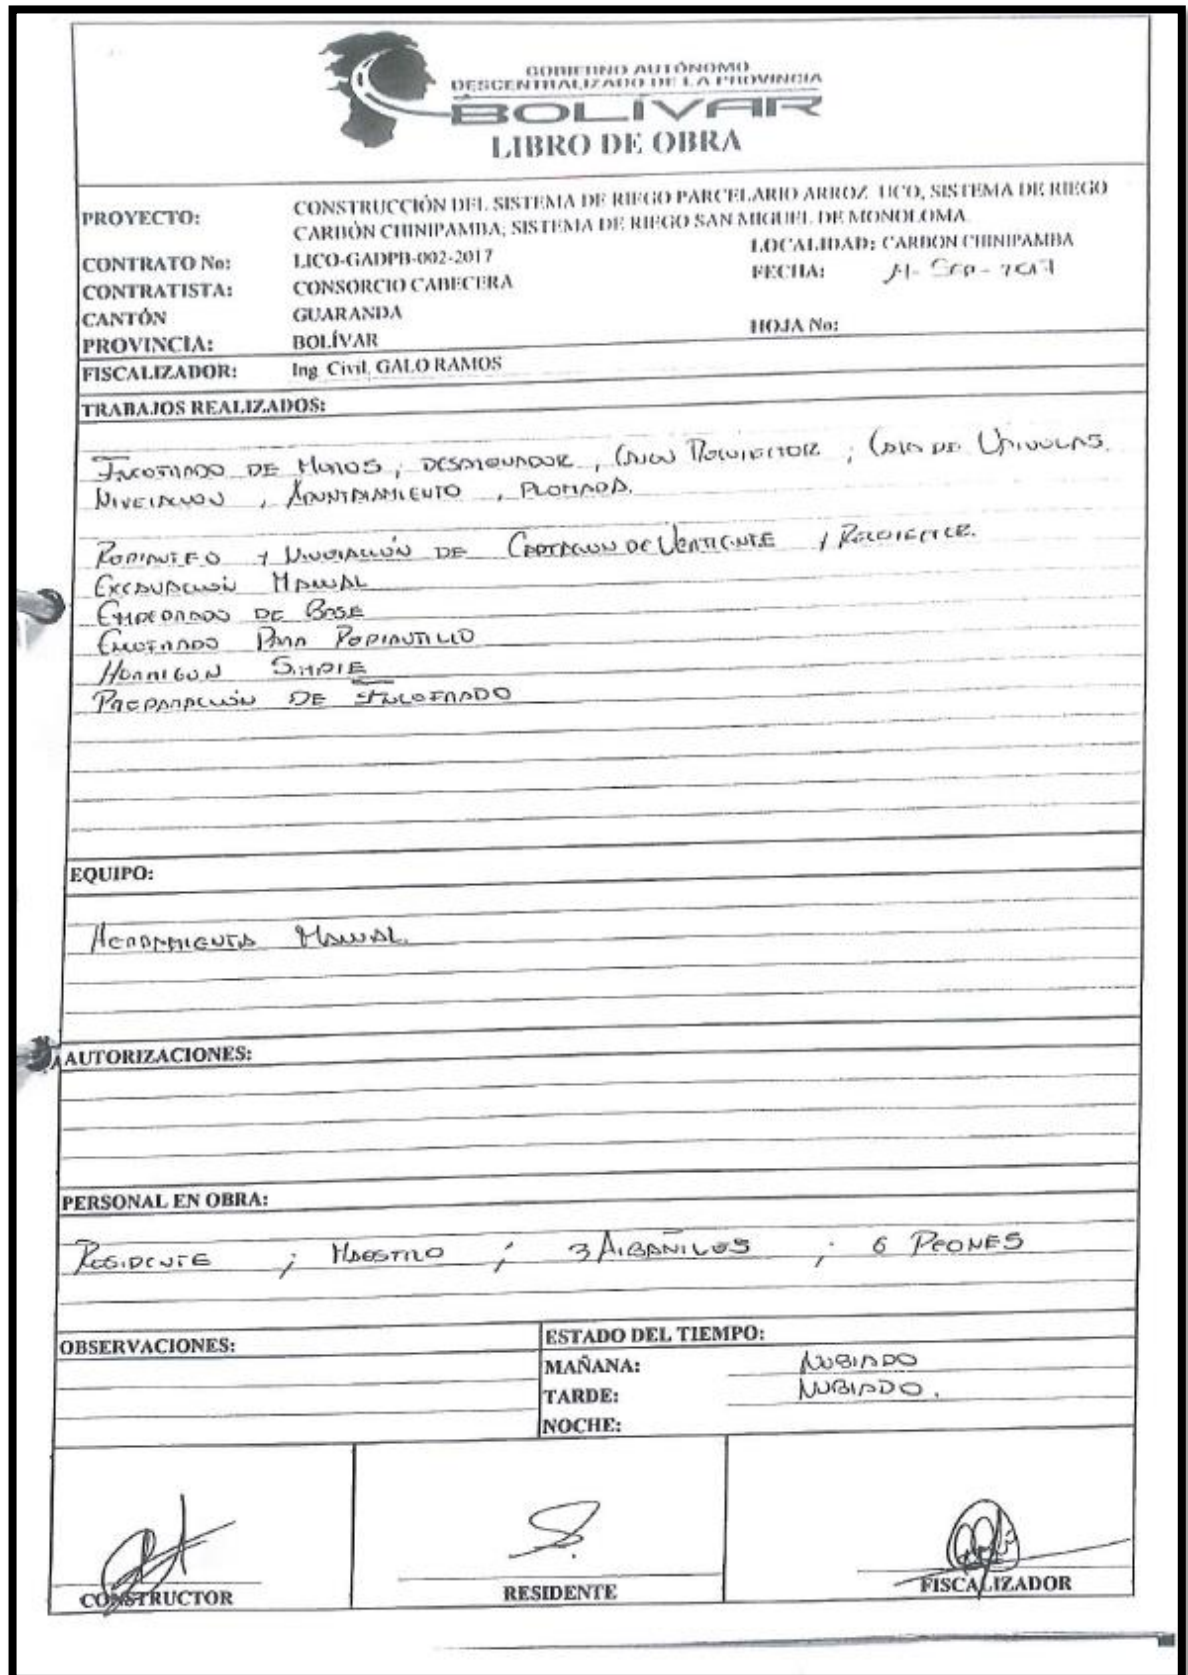 GOBIERNO AUTÓNOMO
DESCENTRALIZADO DE LA PROVINCIA
BOLÍVAR
LIBRO DE OBRA
PROYECTO: CONSTRUCCIÓN DEL SISTEMA DE RIEGO PARCELARIO ARROZ UCO, SISTEMA DE RIEGO
CARBÓN CHINIPAMBA; SISTEMA DE RIEGO SAN MIGUEL DE MONOLOMA
LOCALIDAD: CARBON CHINIPAMBA
CONTRATO No: LICO-GADPB-002-2017
FECHA: SEP-2017
CONTRATISTA: CONSORCIO CABECERA
CANTÓN GUARANDA
HOJA No:
PROVINCIA: BOLÍVAR
FISCALIZADOR: Ing. Civil, GALO RAMOS
TRABAJOS REALIZADOS:
DE MUROS, , CAJON , CAJA DE
NIVELACION , APUNTALAMIENTO , PLOMADA.
Y DE CAPTACION DE VERTIENTE Y
EXCAVACIÓN MANUAL
EMPEDRADO DE BASE
PARA
HORMIGON SIMPLE
PREPARACIÓN DE ENCOFRADO
EQUIPO:
HERRAMIENTA MANUAL.
AUTORIZACIONES:
PERSONAL EN OBRA:
RESIDENTE ; MAESTRO ; 3 ALBAÑILES ; 6 PEONES
OBSERVACIONES:
ESTADO DEL TIEMPO:
MAÑANA: NUBLADO
TARDE: NUBLADO.
NOCHE:
CONSTRUCTOR
RESIDENTE
FISCALIZADOR